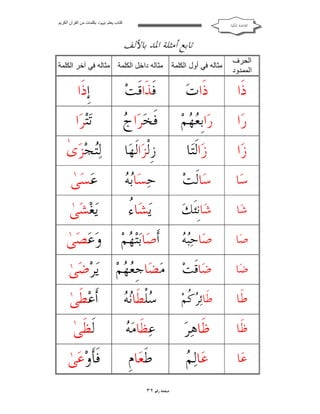 كتاب يعلم تهيوت بكلمات من القرآن الكريم
القاعدة المكية
تابع أمثلة المد بالألف
الحرف الممدود مثاله في أول الكلمة مثاله داخل الكلمة مثاله في آخر الكلمة
ذَا ذَاتَ فَذَاقَتْ إِذَا
رَا رَابِعُهُمْ فَخَرَاجُ تَتْرَا
زَا زَالَتَا زِلْزَالَهَا لِتُجْزَىٰ
سَا سَالَتْ حِسَابُهُ عَسَىٰ
شَا شَانِئَكَ يَشَاءُ يَغْشَىٰ
صَا صَاحِبُهُ أَصَابَتْهُمْ وَعَصَىٰ
ضَا ضَاقَتْ مَضَاجِعُهُمْ يَرْضَىٰ
طَا طَائِرُكُمْ سُلْطَانُهُ أَعْطَىٰ
ظَا ظَاهِرَ عِظَامَهُ لَظَىٰ
عَا عَالِمُ طَعَامِ فَأَوْعَىٰ
صفحة رقم ٣٢